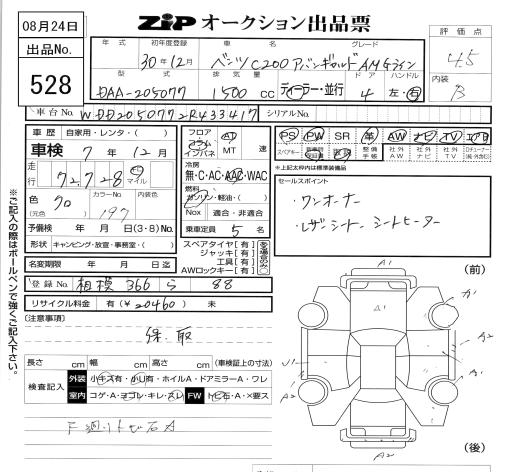 08月24日
出品No.
528
ZiP オークション出品票
評価点
4.5
内装
B
年式 初年度登録 車名 グレード
30年12月 ベンツ C200 アバンギャルド AMGライン
型式 排気量 ディーラー・並行 ドア ハンドル
DAA-205077 1500 cc 4 左・右
車台No. WDD2050772R433417 シリアルNo.
車歴 自家用・レンタ・( )
車検 7年12月
走行 72,728 マイル
色 クロ カラーNo. 197 内装色
(元色)
予備検 年 月 日(3・8)No.
形状 キャンピング・放宣・事務室・( )
名変期限 年 月 日迄
フロア コラム インパネ AT MT 速
冷房
無・C・AC・AAC・WAC
燃料
ガソリン・軽油・( )
Nox 適合・非適合
乗車定員 5 名
スペアタイヤ[有]
ジャッキ[有]
工具[有]
AWロックキー[有]
ある場合のみ○
PS PW SR 革 AW ナビ TV エアB
スペアキー 新車時保証書 取説 整備手帳 社外AW 社外ナビ 社外TV Dチューナー(社外含む)
*上記太枠内は標準装備品
セールスポイント
・ワンオーナー
・レザーシート シートヒーター
登録No. 相模 366 S 88
リサイクル料金 有(¥20460) 未
(注意事項)
保、取
長さ cm 幅 cm 高さ cm (車検証上の寸法)
検査記入 外装 小キズ有・小凹有・ホイルA・ドアミラーA・ワレ
室内 コゲ・A・ヨゴレ・キレ・スレ FW トビ石・A・×要ス
F廻りトビ石A
※ご記入の際はボールペンで強くご記入下さい。
(前)
A1
A1
A2
A2
A2
(後)